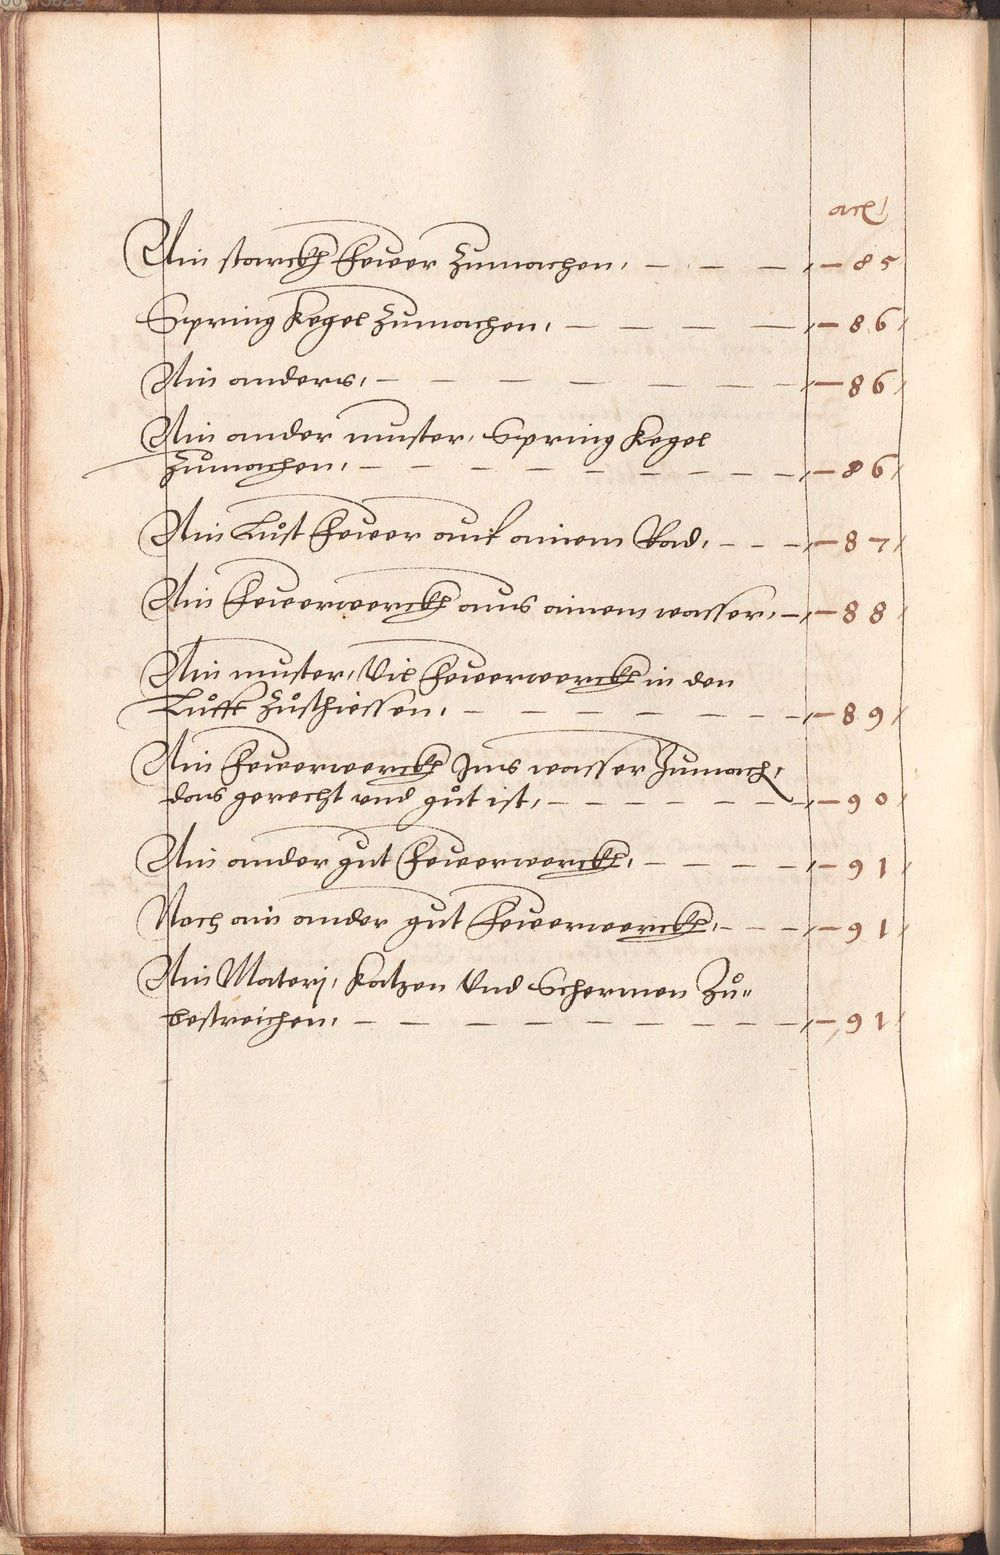 Ain starckh fewer Zumachen, — — — — 85
Spring Kegel Zumachen, — — — — — 86
Ain anders, — — — — — — — — 86
Ain ander muster, Spring Kegel
Zumachen, — — — — — — — — — 86
Ain Lůst fewer auf ainem Rad, — — — — 87
Ain fewerwerckh aus ainem wasser, — — 88
Ain muster, Vil fewerwerckh in den
Lůfft Zůschiessen, — — — — — — — — 89
Ain fewerwerckh Ins wasser Zumach,
das gerecht vnd gůt ist, — — — — — — — 90
Ain ander gut fewerwerckh, — — — — — 91
Noch ain ander gut fewerwerckh, — — — — 91
Ain Materj, Katzen Vnd Schermen Zů-
bestreichen, — — — — — — — — — — 91